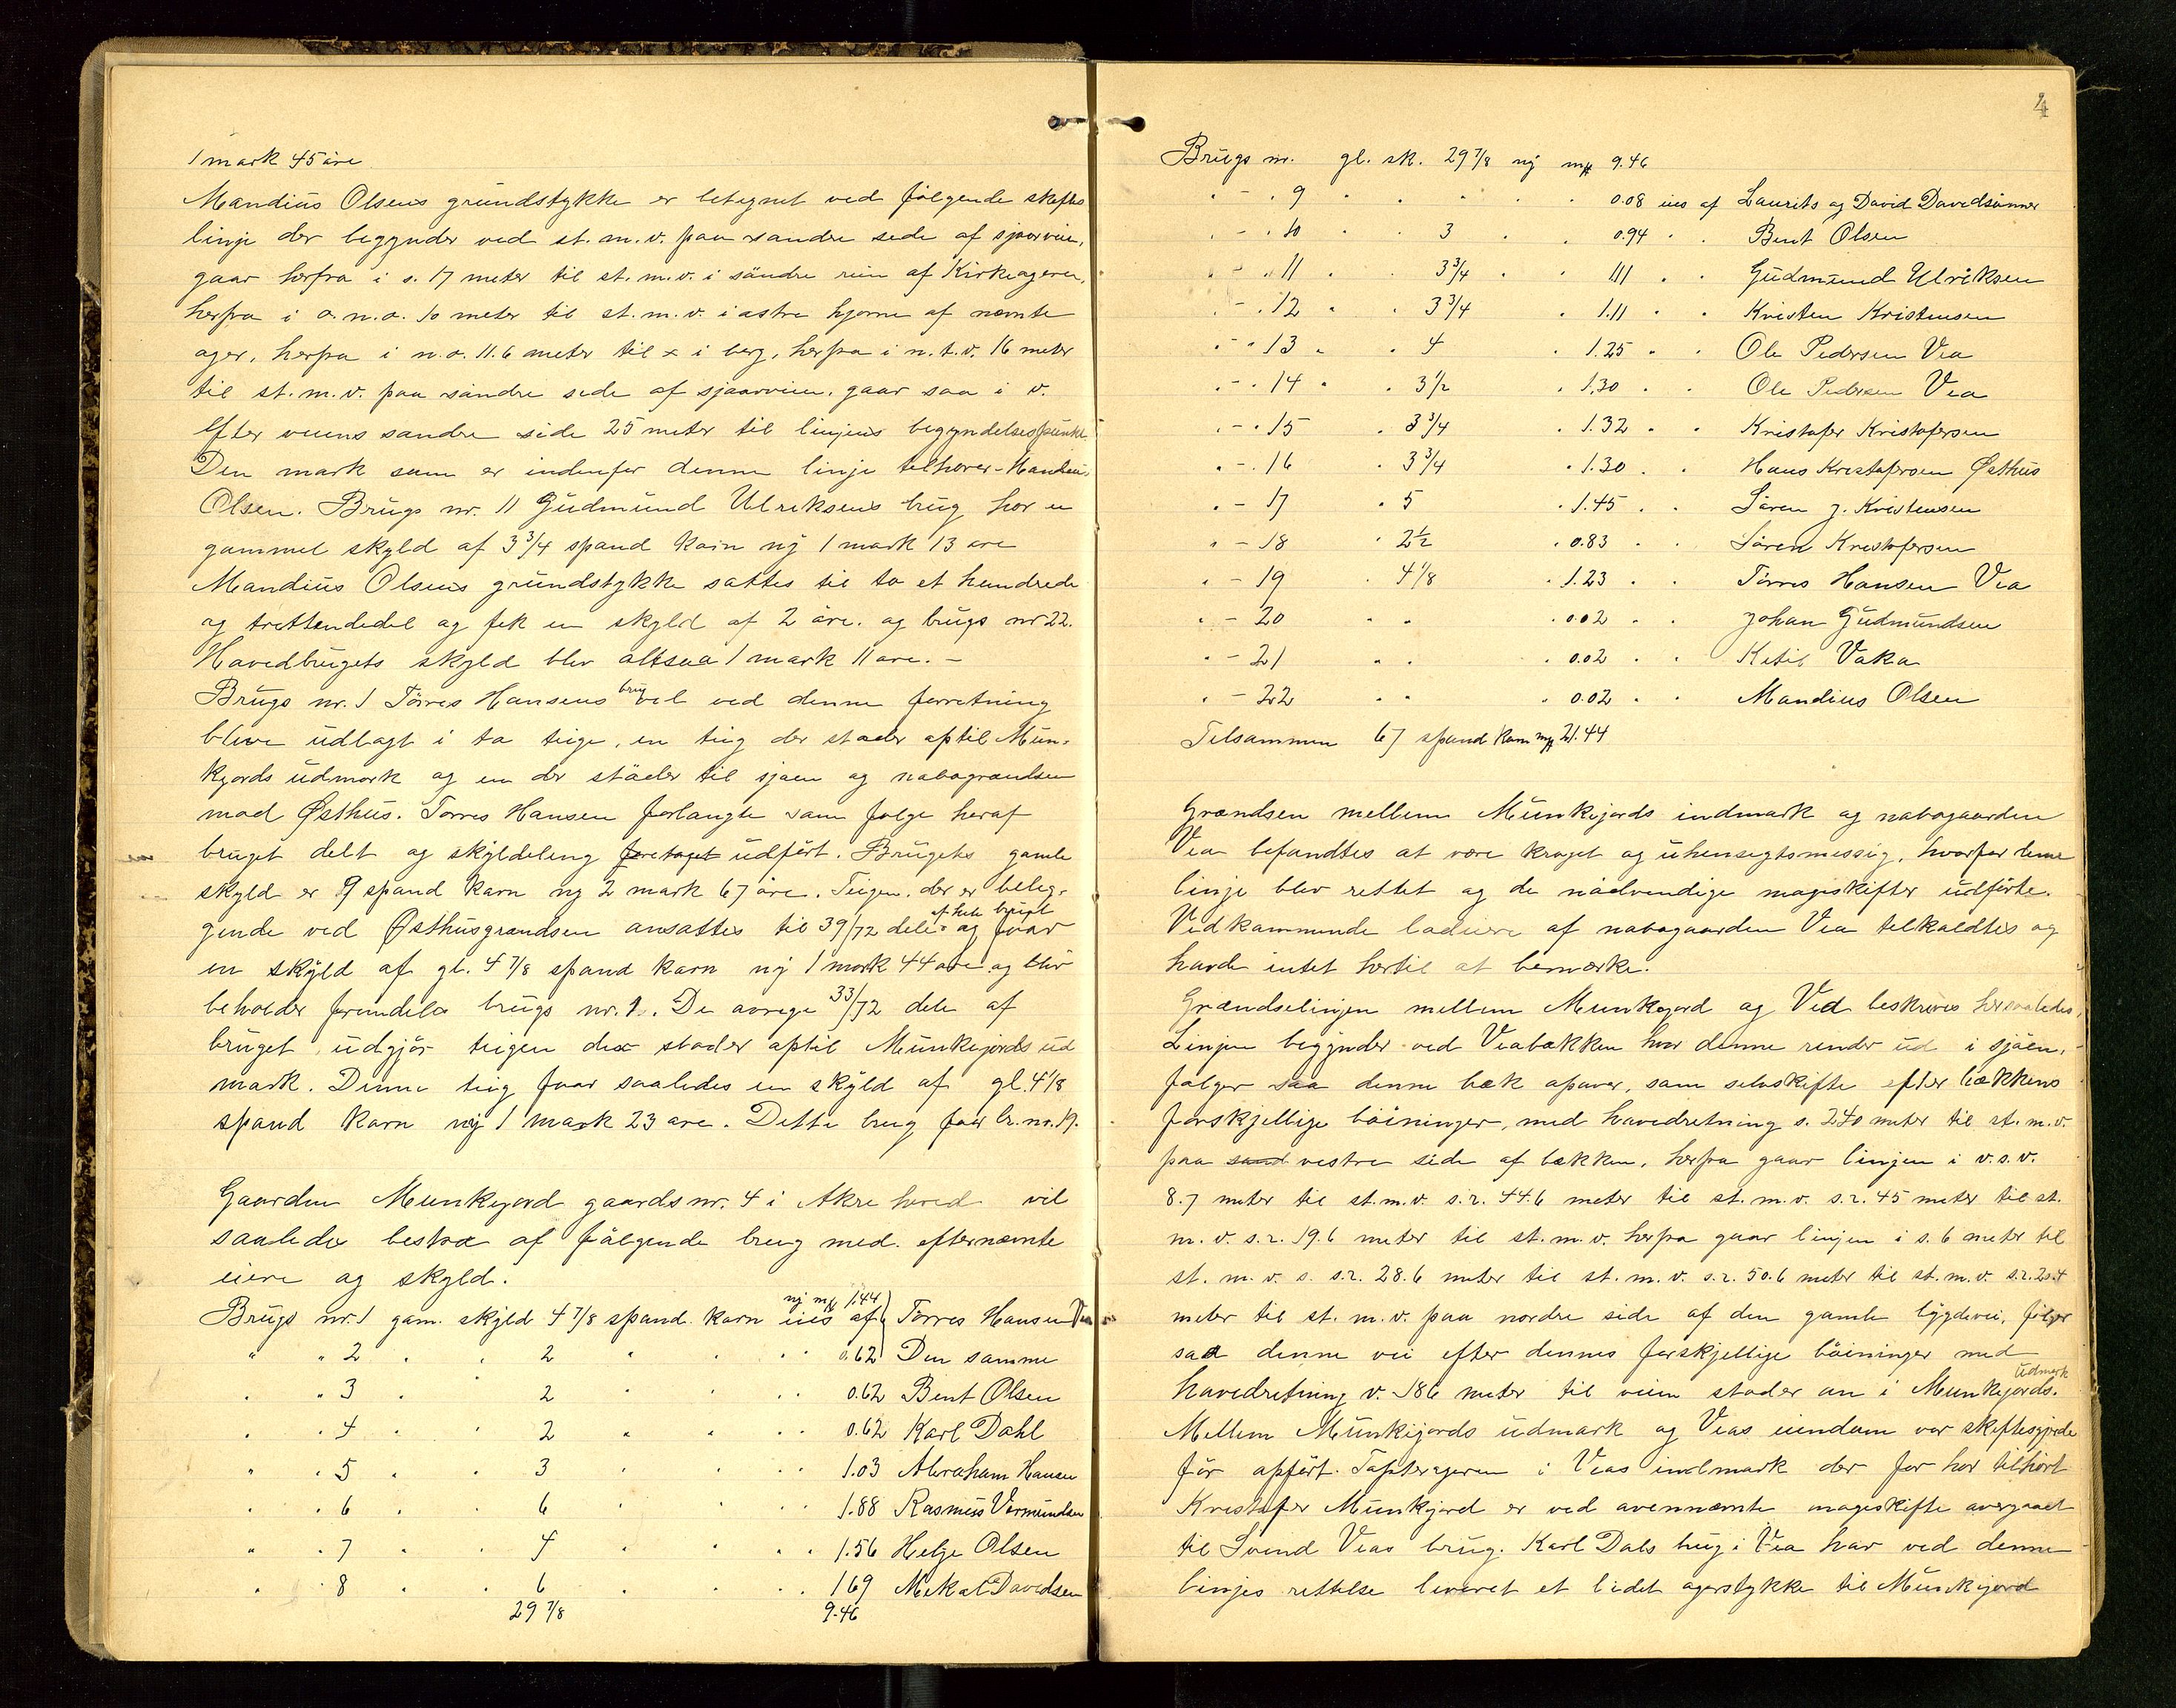 1 mark 45 øre
Mandius Olsens grundstykke er betegnet ved følgende skiftes
linje der begynder ved st. m. v. paa søndre side af sjøveien,
gaar herfra i s. 17 meter til st. m. v. i søndre rein af Kirkeageren,
herfra i ø. n. ø. 10 meter til st. m. v. i østre hjørne af nemte
ager, herfra i n. ø. 11.6 meter til x i berg, herfra i n. t. v. 16 meter
til st. m. v. paa søndre side af sjøveien, gaar saa i v.
efter veiens søndre side 25 meter til linjens begyndelsespunkt.
Den mark som er indenfor denne linje tilhører Mandius
Olsen. Brugs nr. 11 Gudmund Ulriksens brug har en
gammel skyld af 3 3/4 spand korn ny 1 mark 13 øre
Mandius Olsens grundstykke sattes til to et hundrede
og trettendedel og fek en skyld af 2 øre. og brugs nr 22.
Hovedbrugets skyld blev altsaa 1 mark 11 øre. –
Brugs nr. 1 Tørres Hansens brug vil ved denne forretning
blive udlagt i to teige, en teig der støder optil Mun-
kejords udmark og en der støder til sjøen og nabogrændsen
mod Østhus. Tørres Hansen forlangte som følge heraf
bruget delt og skyldeling foretaget udført. Brugets gamle
skyld er 9 spand korn ny 2 mark 67 øre. Teigen der er beleg-
gende ved Østhusgrændsen ansattes til 39/72 dele af hele bruget og faar
en skyld af gl. 4 7/8 spand korn ny 1 mark 44 øre og blir
beholder fremdeles brugs nr. 1. De øvrige 33/72 dele af
bruget udgjør teigen der støder optil Munkejords ud
mark. Denne teig faar saaledes en skyld af gl. 4 1/8
spand korn ny 1 mark 23 øre. Dette brug faar br. nr. 19.
Gaarden Munkejord gaards nr. 4 i Akre hered vil
saaledes bestaa af følgende brug med efternæmte
eiere og skyld.
Brugs nr. 1 gam. skyld 4 7/8 spand korn ny mk 1.44 eies af Tørres Hansen Vea
" " 2 " " 2 " " " " 0.62 Den samme
" " 3 " " 2 " " " " 0.62 Bent Olsen
" " 4 " " 2 " " " " 0.62 Karl Dahl
" " 5 " " 3 " " " " 1.03 Abraham Hansen
" " 6 " " 6 " " " " 1.88 Rasmus Vermundsen
" " 7 " " 4 " " " " 1.56 Helje Olsen
" " 8 " " 6 " " " " 1.69 Mikal Davidsen
29 7/8 9.46
4
Brugs nr. gl. sk. 29 7/8 ny mk 9.46
" - " 9 " " " " 0.08 eies af Laurits og David Davidsønner
" - " 10 " " 3 " " 0.94 " " Bent Olsen
" - " 11 " " 3 3/4 " " 1.11 " " Gudmund Ulriksen
" - " 12 " " 3 3/4 " 1.11 " " Kristen Kristensen
" - " 13 " " 4 " 1.25 " " Ole Pedersen Vea
" - " 14 " " 3 1/2 " 1.30 " " Ole Pedersen Vea
" - " 15 " 3 3/4 " 1.32 " " Kristofer Kristofersen
" - " 16 " 3 3/4 " 1.30 " " Hans Kristofersen Østhus
" - 17 " 5 " 1.45 " " Søren J. Kristensen
" - 18 " 2 1/2 " 0.83 " " Søren Kristofersen
" - 19 " 4 1/8 " 1.23 " " Tørres Hansen Vea
" - 20 " " " 0.02 " " Johan Gudmundsen
" - 21 " " " 0.02 " " Ketil Vaka
" - 22 " " " 0.02 " " Mandius Olsen
Tilsammen 67 spand korn mk 21.44
Grændsen mellem Munkejords indmark og nabogaarden
Vea befandtes at være kroget og uhensigtsmessig, hvorfor denne
linje blev rettet og de nødvendige mageskifter udførte.
Vedkommende lodeiere af nabogaarden Vea tilkaldtes og
havde intet hertil at bemærke.
Grændselinjen mellem Munkejord og Ved beskrives her saaledes,
Linjen begynder ved Veabækken hvor denne render ud i sjøen,
følger saa denne bæk opover, som selvskifte efter bækkens
forskjellige bøininger, med hovedretning s. 240 meter til st. m. v.
paa vestre side af bækken, herfra gaar linjen i v. s. v.
8.7 meter til st. m. v. s. r. 44.6 meter til st. m. v. s. r. 45 meter til st.
m. v. s. r. 19.6 meter til st. m. v. herfra gaar linjen i s. 6 meter til
st. m. v. s. s. r. 28.6 meter til st. m. v. s. r. 50.6 meter til st. m. v. s. r. 20.4
meter til st. m. v. paa nordre side af den gamle bygdevei, følger
saa denne vei efter dennes forskjellige bøininger med
hovedretning v. 186 meter til veien støder an i Munkejords udmark.
Mellem Munkejords udmark og Veas eiendom var skiftesgjerde
før opført. Tofteageren i Veas indmark der før har tilhørt
Kristofer Munkejord er ved ovennæmte mageskifte overgaaet
til Svend Veas brug. Karl Dals brug i Vea har ved denne
linjes rettelse leveret et lidet agerstykke til Munkejord